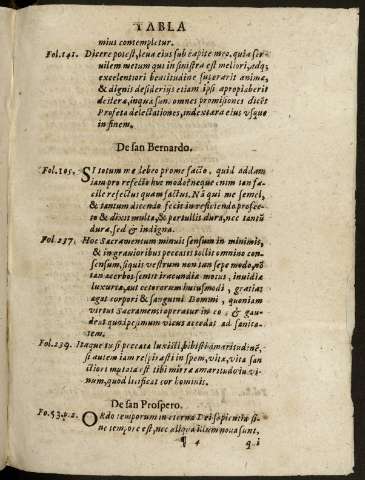 TABLA
mius contempletur.
Fol.141. Dicere potest, leua eius sub capite meo, quia ser
uilem metum qui in sinistra est meliori, edq;
excelentiori beatitudine superarit animæ,
& dignis desiderijs etiam ipsi apropiaberit
deitera, in qua san. omnes promisiones dicēt
Profeta delectationes, in dextara eius vsque
in finem.
De san Bernardo.
Fol.105. SI totum me debeo pro me facto, quid addam
iam pro refecto hoc modo? neque enim tan fa-
cile refectus quam factus. Nā qui me semel,
& tantum dicendo fecit in reficiendo profec-
to & dixit multa, & pertullis dura, nec tantū
dura, sed & indigna.
Fol.237. Hoc Sacramentum minuit sensum in minimis,
& in grauioribus peccatis tollit omnino con-
sensum, si quis vestrum non tan sepe modo, nō
tan acerbos sentit iracundiæ motus, inuidiæ
luxuriæ, aut ceterorum huiusmodi, gratias
agat corpori & sanguini Domini, quoniam
virtus Sacramenti operatur in eo, & gau-
deat quod pesimum vicus accedat ad sanita-
tem.
Fol.239. Itaque tu si peccata luxisti, bibisti amaritudinē,
si autem iam respirasti in spem, vita, vita san
ctiori mutata est tibi mirra amaritudo in vi-
num, quod lætificat cor hominis.
De san Prospero.
Fo.53.p.2. ORdo temporum in eterna Dei sapientia si-
ne tempore est, nec aliqua illi em noua sunt,
¶ 4 qui